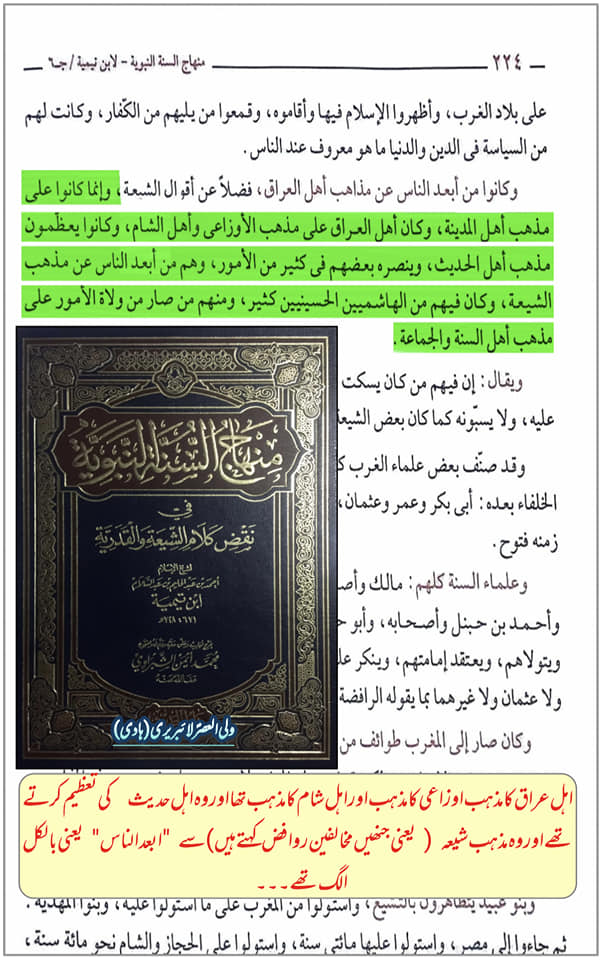 ٢٢٤
منهاج السنة النبوية – لابن تيمية / جـ٦
على بلاد الغرب، وأظهروا الإسلام فيها وأقاموه، وقمعوا من يليهم من الكفّار، وكانت لهم
من السياسة فى الدين والدنيا ما هو معروف عند الناس.
وكانوا من أبعد الناس عن مذاهب أهل العراق، فضلاً عن أقوال الشيعة، وإنما كانوا على
مذهب أهل المدينة، وكان أهل العراق على مذهب الأوزاعى وأهل الشام، وكانوا يعظّمون
مذهب أهل الحديث، وينصره بعضهم فى كثير من الأمور، وهم من أبعد الناس عن مذهب
الشيعة، وكان فيهم من الهاشميين الحسينيين كثير، ومنهم من صار من ولاة الأمور على
مذهب أهل السنة والجماعة.
ويقال: إن فيهم من كان يسكت
عليه، ولا يسبّونه كما كان بعض الشيعة
وقد صنّف بعض علماء الغرب
الخلفاء بعده: أبى بكر وعمر وعثمان،
زمنه فتوح.
وعلماء السنة كلهم: مالك
وأحمد بن حنبل وأصحابه،
ويتولاهم، ويعتقد إمامتهم، وينكر
ولا عثمان ولا غيرهما بما يقوله الرافضة
وكان صار إلى المغرب طوائف من
منهاج السنة النبوية
في
نقض كلام الشيعة والقدرية
ابن تيمية
ولی العصر لائبریری (ہادی)
اہل عراق کا مذہب اوزاعی کا مذہب اور اہل شام کا مذہب تھا اور وہ اہل حدیث کی تعظیم کرتے
تھے اور وہ مذہب شیعہ ( یعنی جنھیں مخالفین روافض کہتے ہیں) سے "ابعد الناس" یعنی بالکل
الگ تھے ۔۔۔
وبنو عبيد يتظاهرون بالتشيع، واستولوا من المغرب على ما استولوا عليه، وبنوا المهدية.
ثم جاءوا إلى مصر، واستولوا عليها مائتى سنة، واستولوا على الحجاز والشام نحو مائة سنة،